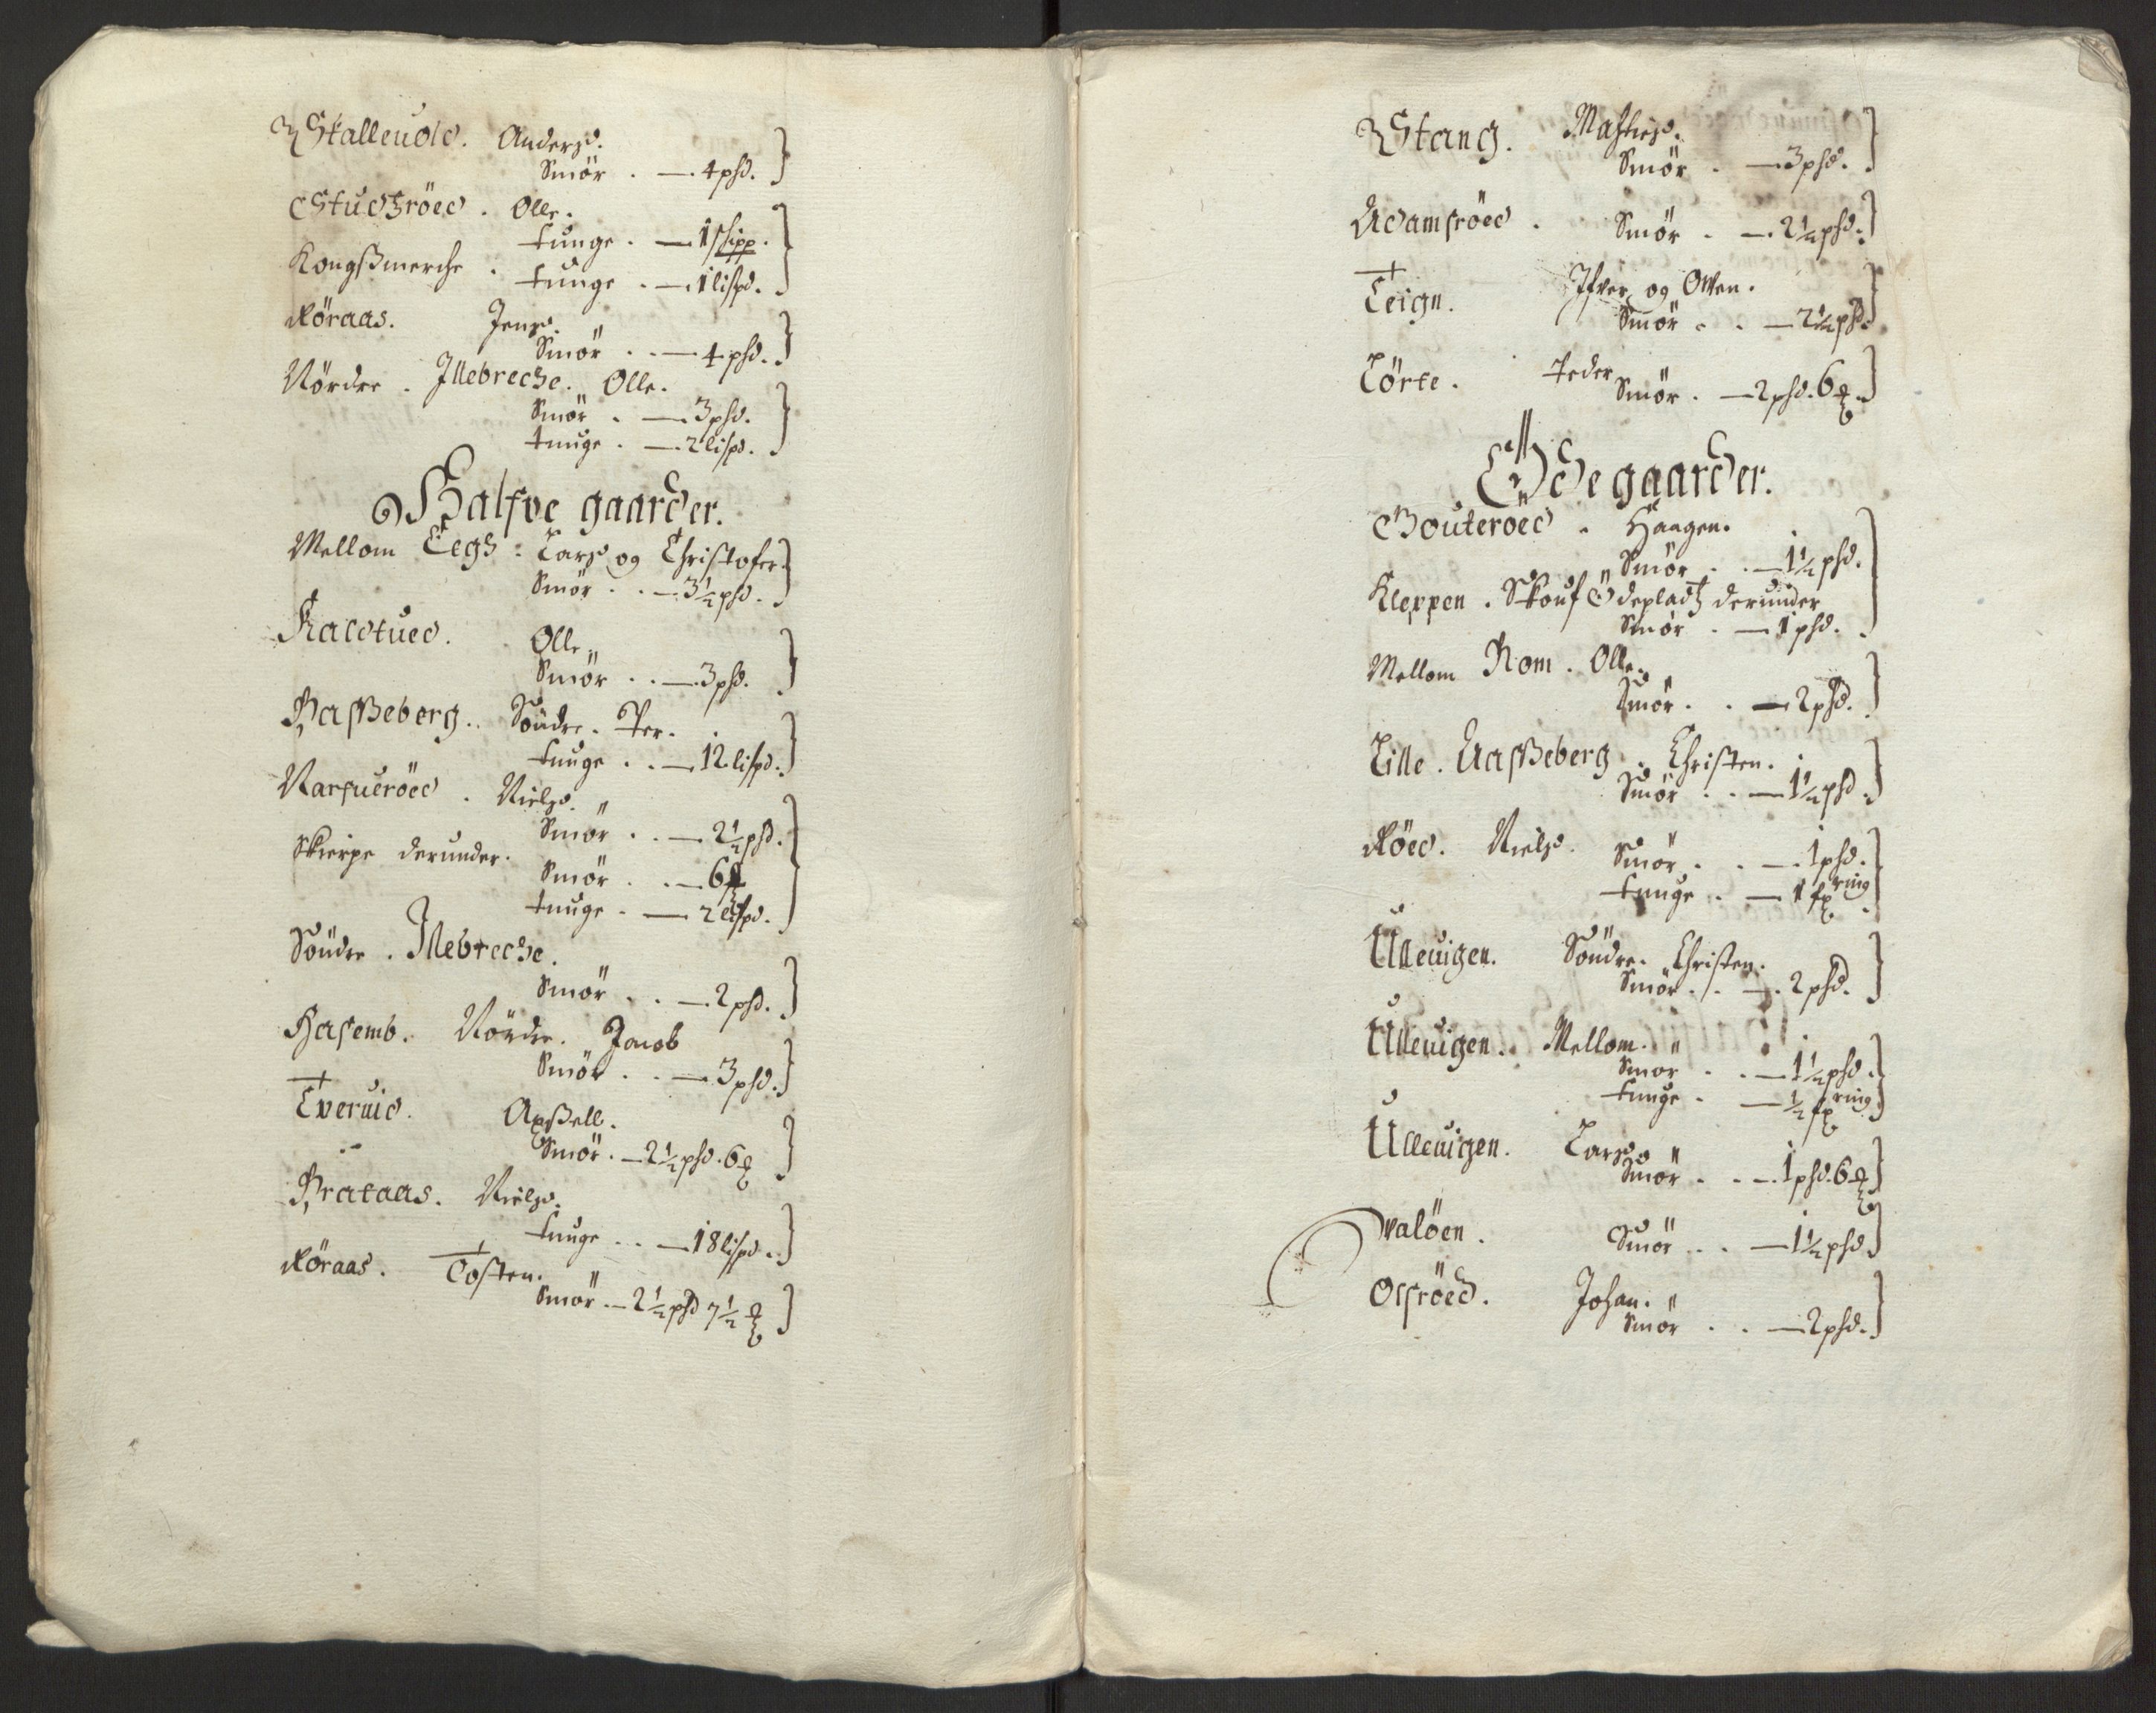 Skalleuold. Anderss.
Smör . — 4 phd.
Studtzröed . Olle.
tunge . — 1 skipp.
Kongssmerche .
tunge . — 1 lispd.
Röraas. Jenss.
Smör . . — 4 phd.
Nördre . Jllebrecke. Olle.
Smör . — 3 phd.
tunge . — 2 lispd.
Halfve gaarder.
Mellom Eegs . Larss og Christofer.
Smör . . — 3½ phd.
Kaldtued. Olle.
Smör . . — 3 phd.
Basseberg . Söndre . Per.
tunge . . — 12 lispd.
Narfueröed . Nielss.
Smör . . — 2½ phd.
Skierpe derunder.
Smör . . — 6
tunge . — 2 lispd.
Söndre . Jllebrecke.
Smör . . — 2 phd.
Basemb. Nördre. Jacob
Smör . . — 3 phd.
Tveruid. Axssell.
Smör . — 2½ phd. 6 ℔
Brataas. Nielss.
tunge . . — 18 lispd.
Röraas. Tosten.
Smör . — 2½ phd 7½ ℔
Stang. Mathiss.
Smör . — 3 phd.
Adamsröed . Smör . — 2½ phd.
Teign. Ifver og Owen.
Smör . . — 2½ phd.
Törte. Peder
Smör . — 2 phd. 6 ℔
Öde gaarder.
Bouteroed . Haagen.
Smör . . — 1½ phd.
Kleppen . Skouf Ödepladtz derunder
Smör . — 1 phd.
Mellom Rom . Olle.
Smör . . — 2 phd.
Lille . Aasseberg . Christen.
Smör . . — 1½ phd.
Röed. Nielss. Smör . . — 1 phd.
tunge . — 1 fxring
Ulleuigen. Söndre. Christen.
Smör . . — 2 phd.
Ulleuigen. Mellom.
Smör . . — 1½ phd.
tunge . — ½ fxring
Ulleuigen. Larss
Smör . . — 1 phd. 6 ℔
Valöen. Smör . . — 1½ phd.
Olsröed. Johan.
Smör . . — 2 phd.